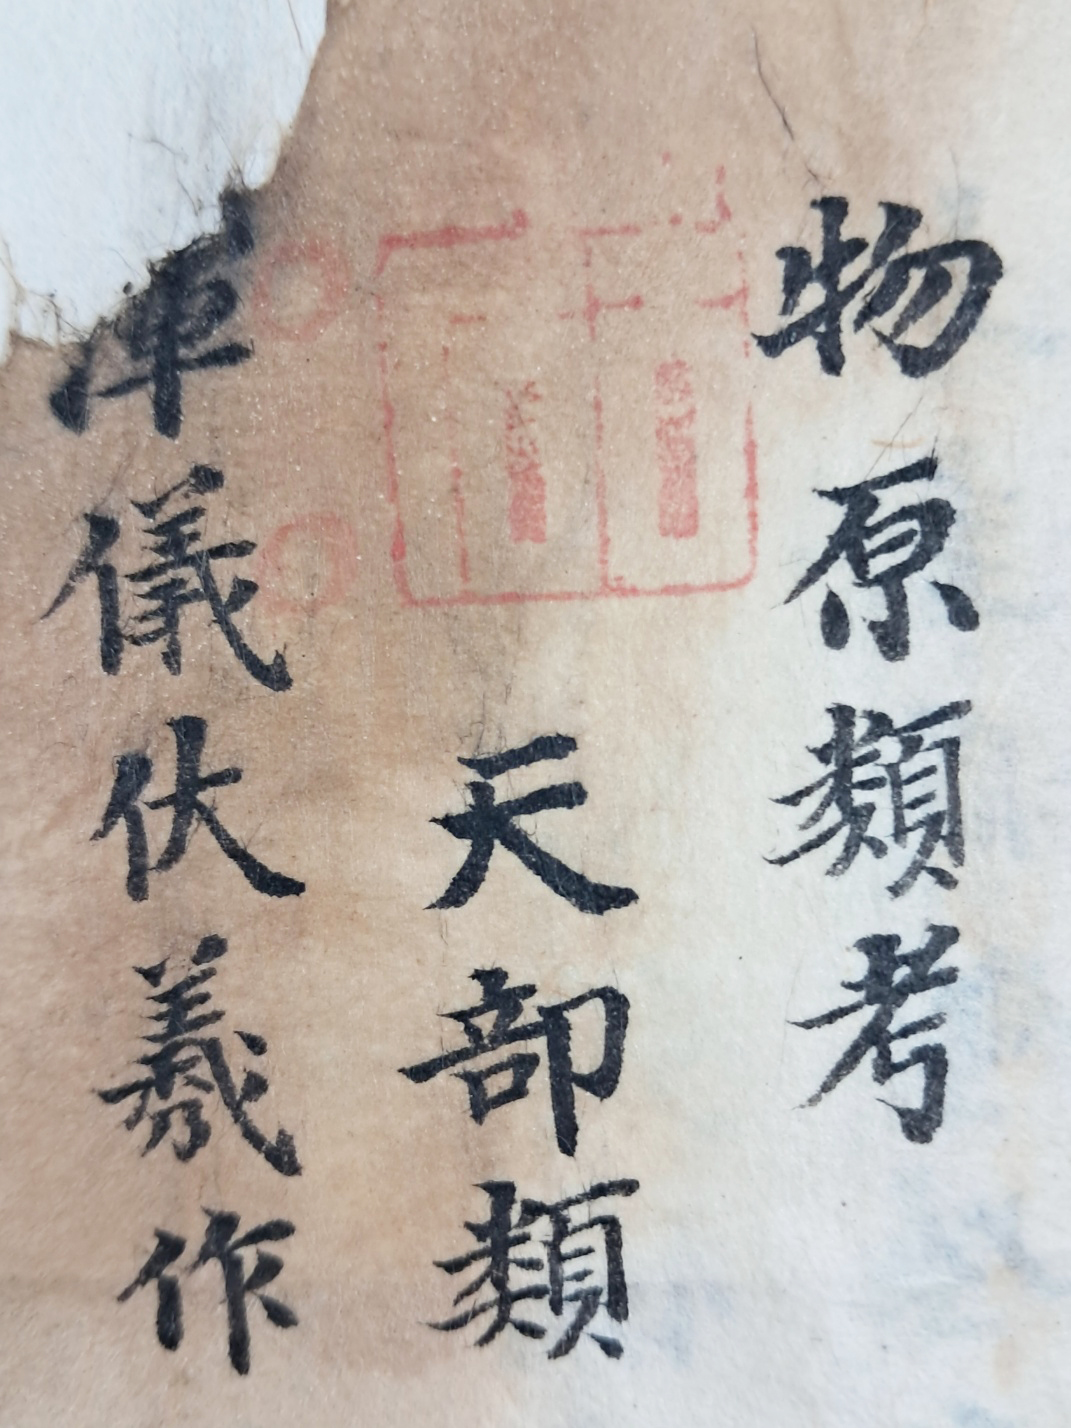 物原類考
天部類
渾儀伏羲作